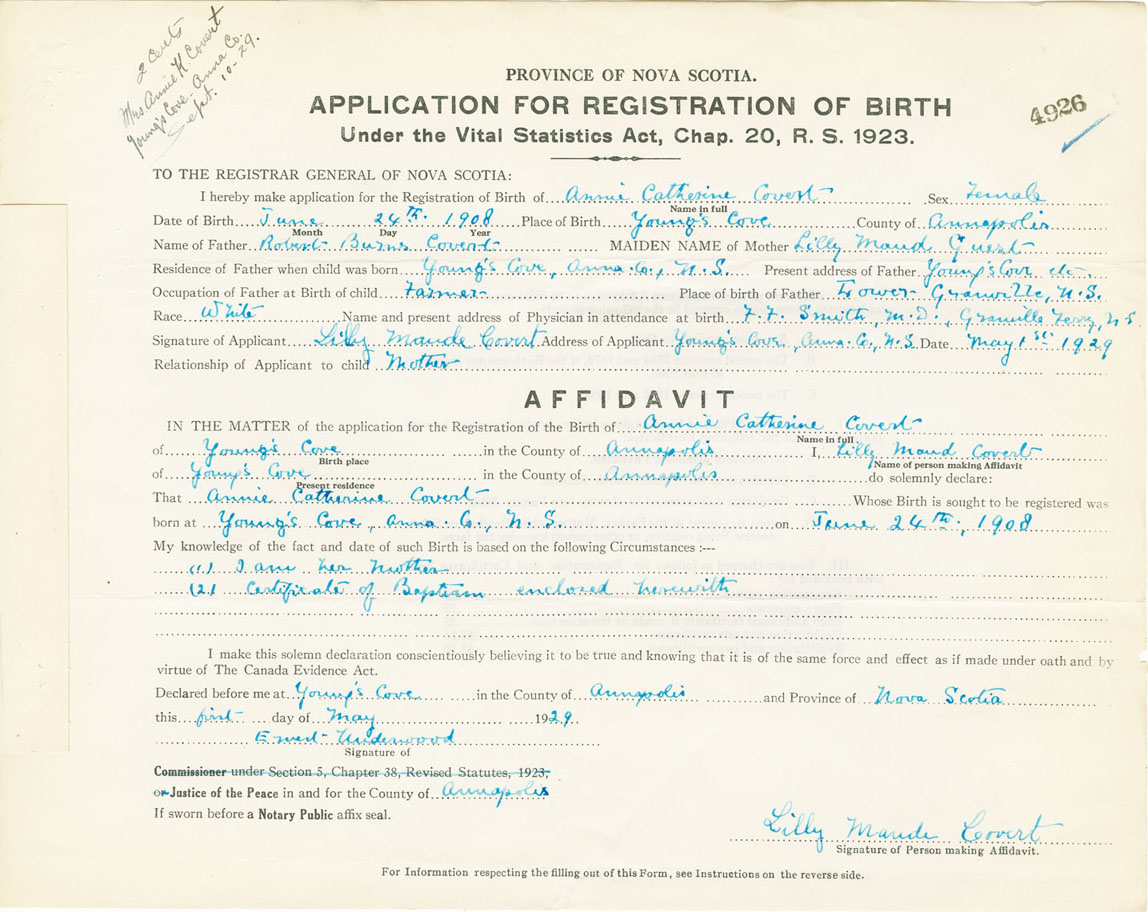 2 cents
Mrs. Annie K. Covert
Young's Cove - Anna Co.
Sept. 10 - 29.
PROVINCE OF NOVA SCOTIA.
APPLICATION FOR REGISTRATION OF BIRTH
4926
Under the Vital Statistics Act, Chap. 20, R. S. 1923.
TO THE REGISTRAR GENERAL OF NOVA SCOTIA:
I hereby make application for the Registration of Birth of Annie Catherine Covert Sex Female
Name in full
Date of Birth June 24th 1908 Place of Birth Young's Cove County of Annapolis
Month Day Year
Name of Father Robert Burns Covert MAIDEN NAME of Mother Lilly Maud Guest
Residence of Father when child was born Young's Cove, Anna. Co., N.S. Present address of Father Young's Cove etc.
Occupation of Father at Birth of child Farmer Place of birth of Father Lower Granville, N.S.
Race White Name and present address of Physician in attendance at birth F. F. Smith, M.D., Granville Ferry, N.S.
Signature of Applicant Lilly Maude Covert Address of Applicant Young's Cove, Anna. Co., N.S. Date May 1st 1929
Relationship of Applicant to child Mother
AFFIDAVIT
IN THE MATTER of the application for the Registration of the Birth of Annie Catherine Covert
Name in full
of Young's Cove in the County of Annapolis I, Lilly Maud Covert
Birth place Name of person making Affidavit
of Young's Cove in the County of Annapolis do solemnly declare:
Present residence
That Annie Catherine Covert Whose Birth is sought to be registered was
born at Young's Cove, Anna. Co., N.S. on June 24th, 1908
My knowledge of the fact and date of such Birth is based on the following Circumstances :---
(1) I am her mother
(2) Certificate of Baptism enclosed herewith
I make this solemn declaration conscientiously believing it to be true and knowing that it is of the same force and effect as if made under oath and by
virtue of The Canada Evidence Act.
Declared before me at Young's Cove in the County of Annapolis and Province of Nova Scotia
this first day of May 1929
Ernest Underwood
Signature of
Commissioner under Section 5, Chapter 38, Revised Statutes, 1923,
or Justice of the Peace in and for the County of Annapolis
If sworn before a Notary Public affix seal.
Lilly Maude Covert
Signature of Person making Affidavit.
For Information respecting the filling out of this Form, see Instructions on the reverse side.